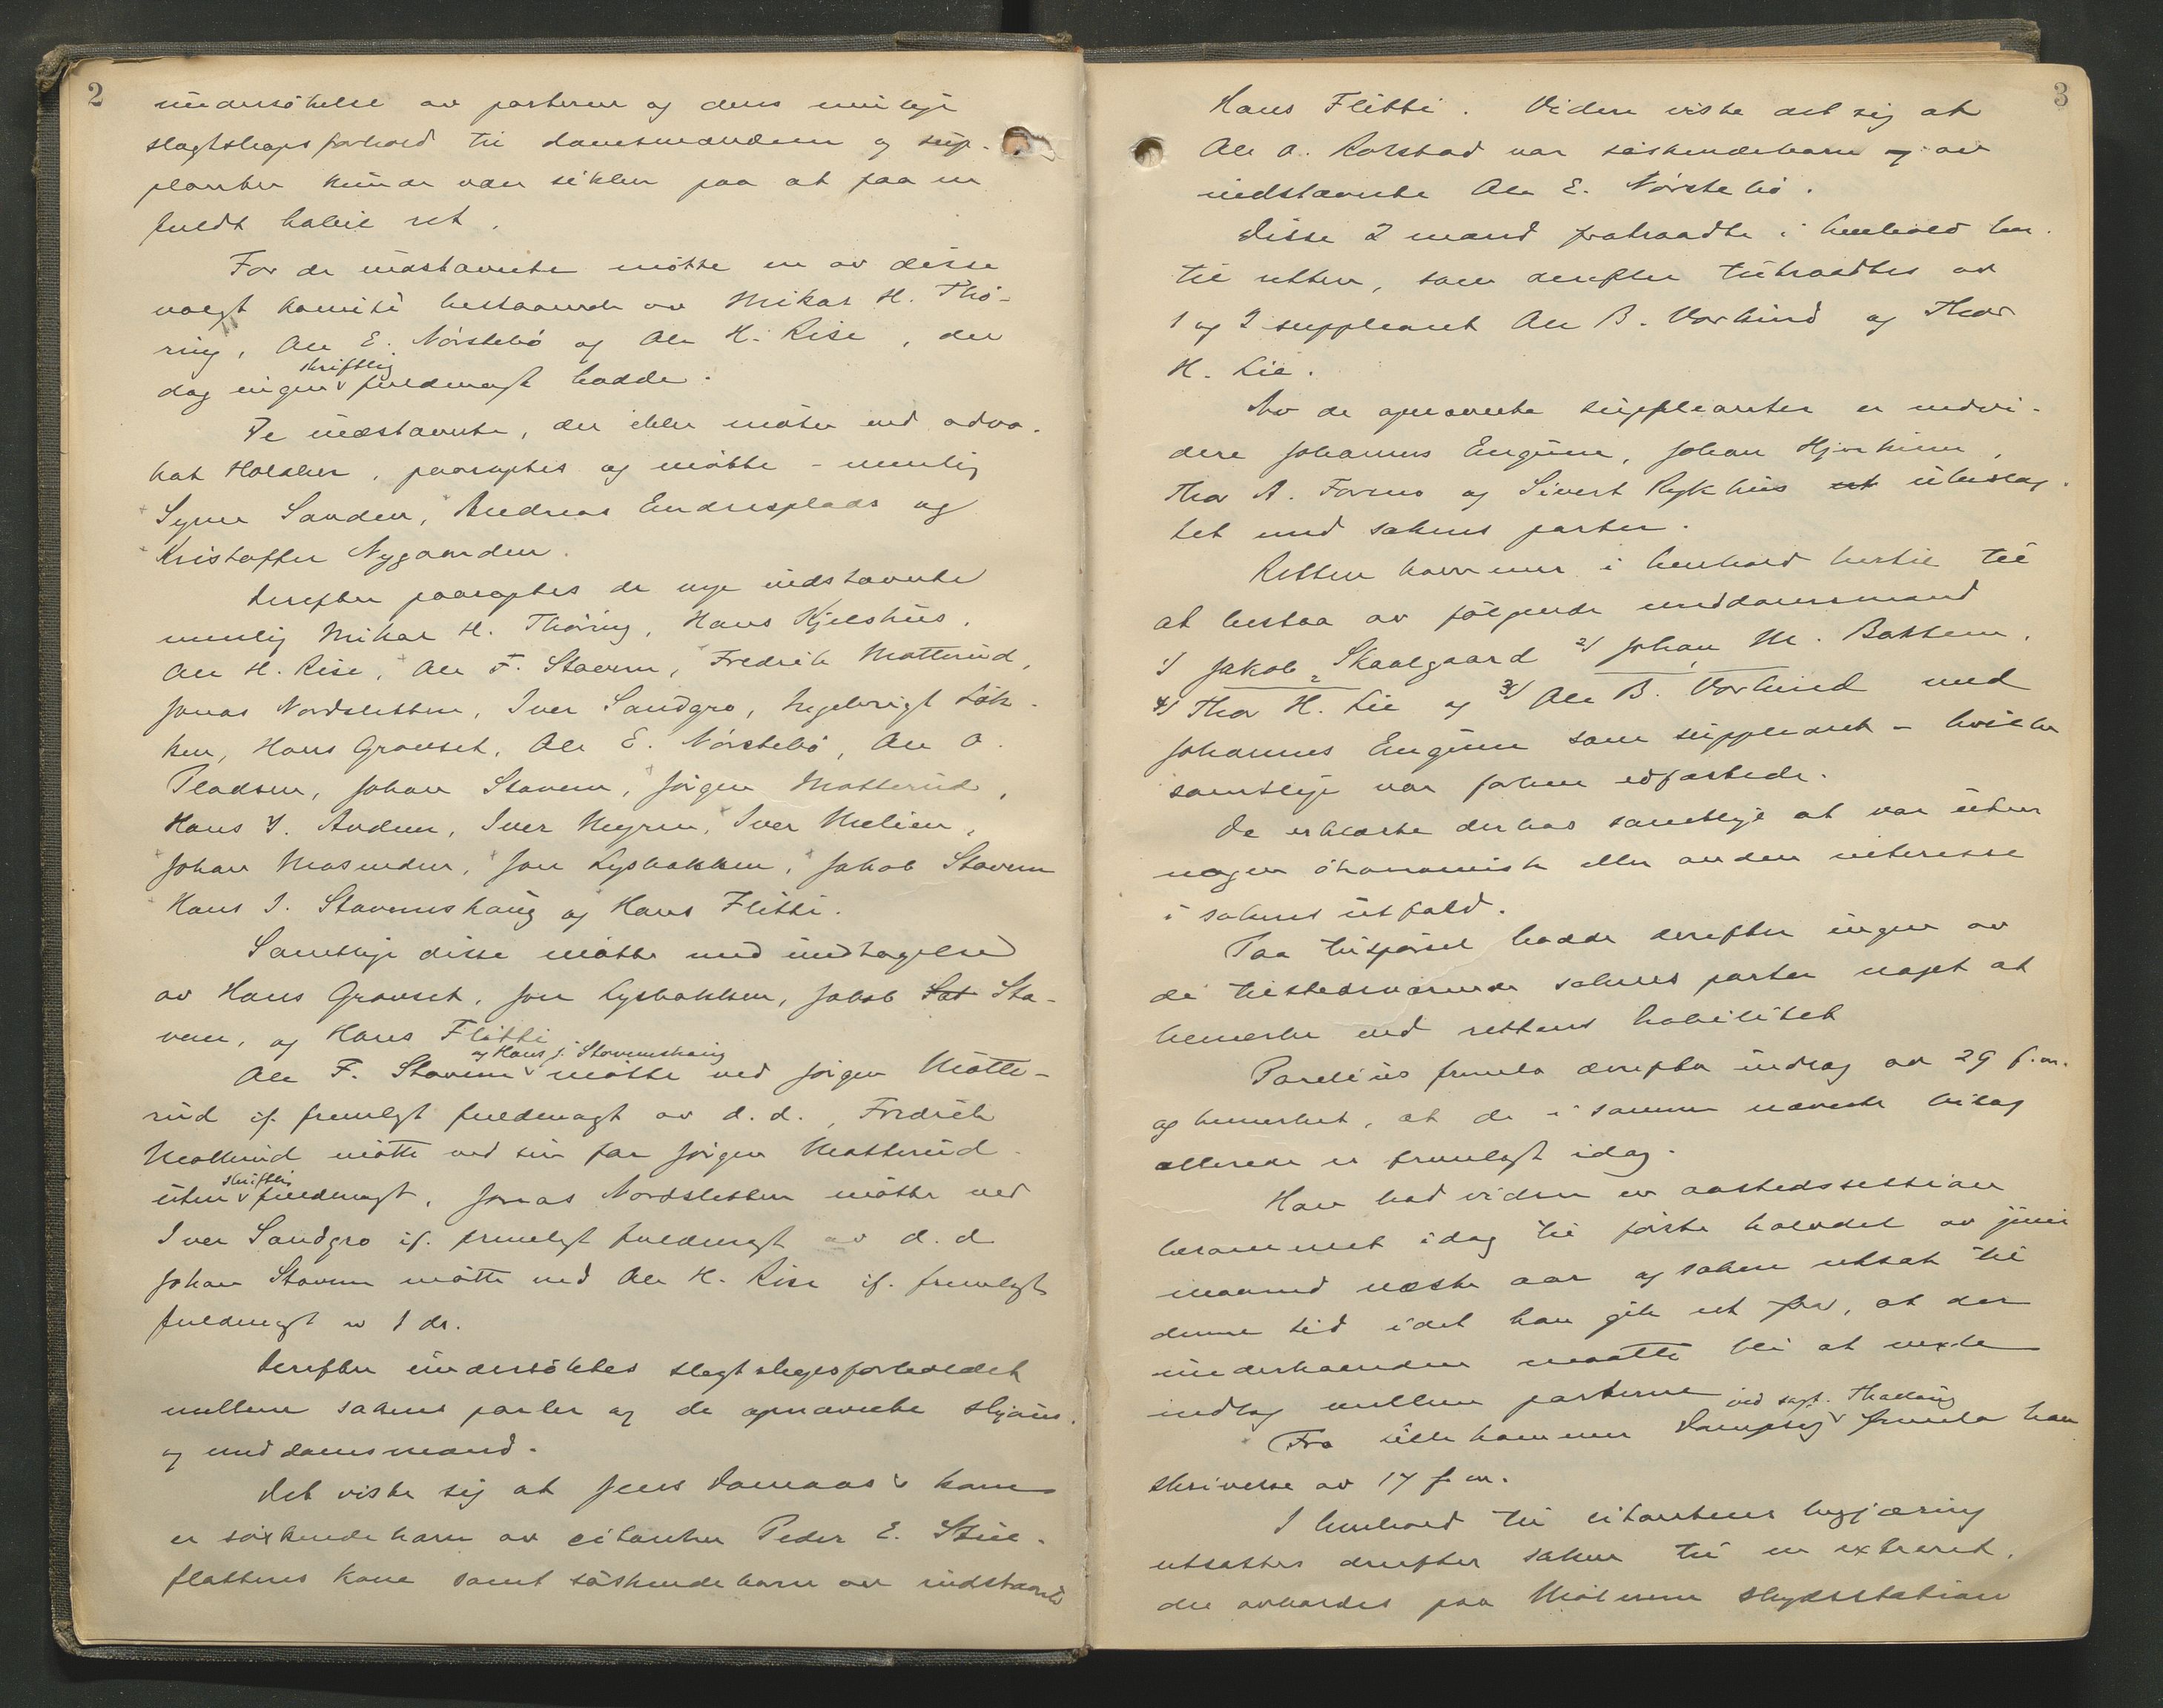 2
undersökelse av parterne og deres mulige
slegtskapsforhold til domsmændene og sup-
pleanter kunde være sikker paa at faa en
fuldt habil ret.
For de indstevnte møtte en av disse
valgt komité bestaaende av Mikal H. Thø-
ring, Ole E. Nörstebö og Ole H. Rise, der
skriftlig
dog ingen fuldmagt hadde.
De indstevnte, der ikke møter ved advo-
kat Holaker, paaroptes og møtte - nemlig
Syver Sanden, Andreas Endresplads og
Kristoffer Nygaarden.
Derefter paaroptes de nye indstevnte
nemlig Mikal H. Thøring, Hans Kjelshus,
Ole H. Rise, Ole F. Stavem, Fredrik Motterud,
Jonas Nordsletten, Iver Sandgro, Ingebrigt Løk-
ken, Hans Granset, Ole E. Nörstebö, Ole O.
Pladsen, Johan Stavem, Jörgen Motterud,
Hans J. Anden, Iver Myren, Iver Melien,
Johan Mosenden, Jon Lysbakken, Jakob Stavem
Hans J. Stavemshaug og Hans Flitti.
Samtlige disse møtte med undtagelse
av Hans Granset, Jon Lysbakken, Jakob Sat Sta-
vem, og Hans Flitti
og Hans J. Stavemshaug
Ole F. Stavem møtte ved Jörgen Motte-
rud if. fremlagt fuldmagt av d.d., Fredrik
Motterud møtte ved sin far Jörgen Motterud
skriftlig
uten fuldmagt, Jonas Nordsletten møtte ved
Iver Sandgro if. fremlagt fuldmagt av d.d
Johan Stavem møtte ved Ole H. Rise if. fremlagt
fuldmagt av 1 ds.
Derefter undersöktes slegtskapsforholdet
mellem sakens parter og de opnævnte skjöns-
og meddomsmænd.
Det viste sig at Jens Domaas's kone
er söskendebarn av citanten Peder E. Stue-
flattens kone samt söskendebarn av indstævnte
3
Hans Flitti. Videre viste det sig at
Ole O. Kolstad var söskendebarn av
indstævnte Ole E. Nörstebö.
Disse 2 mænd fratraadte i henhold her-
til retten, som derefter tiltraadtes av
1 og 2 suppleant Ole B. Vorkind og Thor
H. Lie.
Av de opnævnte suppleanter er nedvi-
dere Johannes Engum, Johan Hjerkinn,
Thor A. Formo og Sivert Rykhus ubeslæg-
tet med sakens parter.
Retten kommer i henhold hertil til
at bestaa av følgende meddomsmænd
1) Jakob Skaalgaard 2) Johan M. Bakken,
4) Thor H. Lie og 3) Ole B. Vorkind med
Johannes Engum som suppleant - hvilke
samtlige var forhen edfæstede.
De erklærte derhos samtlige at være uten
nogen ökonomisk eller anden interesse
i sakens utfald.
Paa tilspørsel hadde derefter ingen av
de tilstedeværende sakens parter noget at
bemerke ved rettens habilitet
Parelius fremla derefter indlæg av 29 f.m.
og bemerket, at de i samme nævnte bilag
allerede er fremlagt idag.
Han bad videre en aastedssession
berammet idag til første halvdel av juni
maaned næste aar og saken utsat til
denne tid idet han gik ut fra, at der
underhaanden maatte bli at vexle
indlæg mellem parterne
ved sagf. Thallaug
Fra Lillehammer Dampsag fremla han
skrivelse av 17 f.m.
I henhold til citantens begjæring
utsattes derefter saken til en extraret,
der avholdes paa Mölmen skydsstation